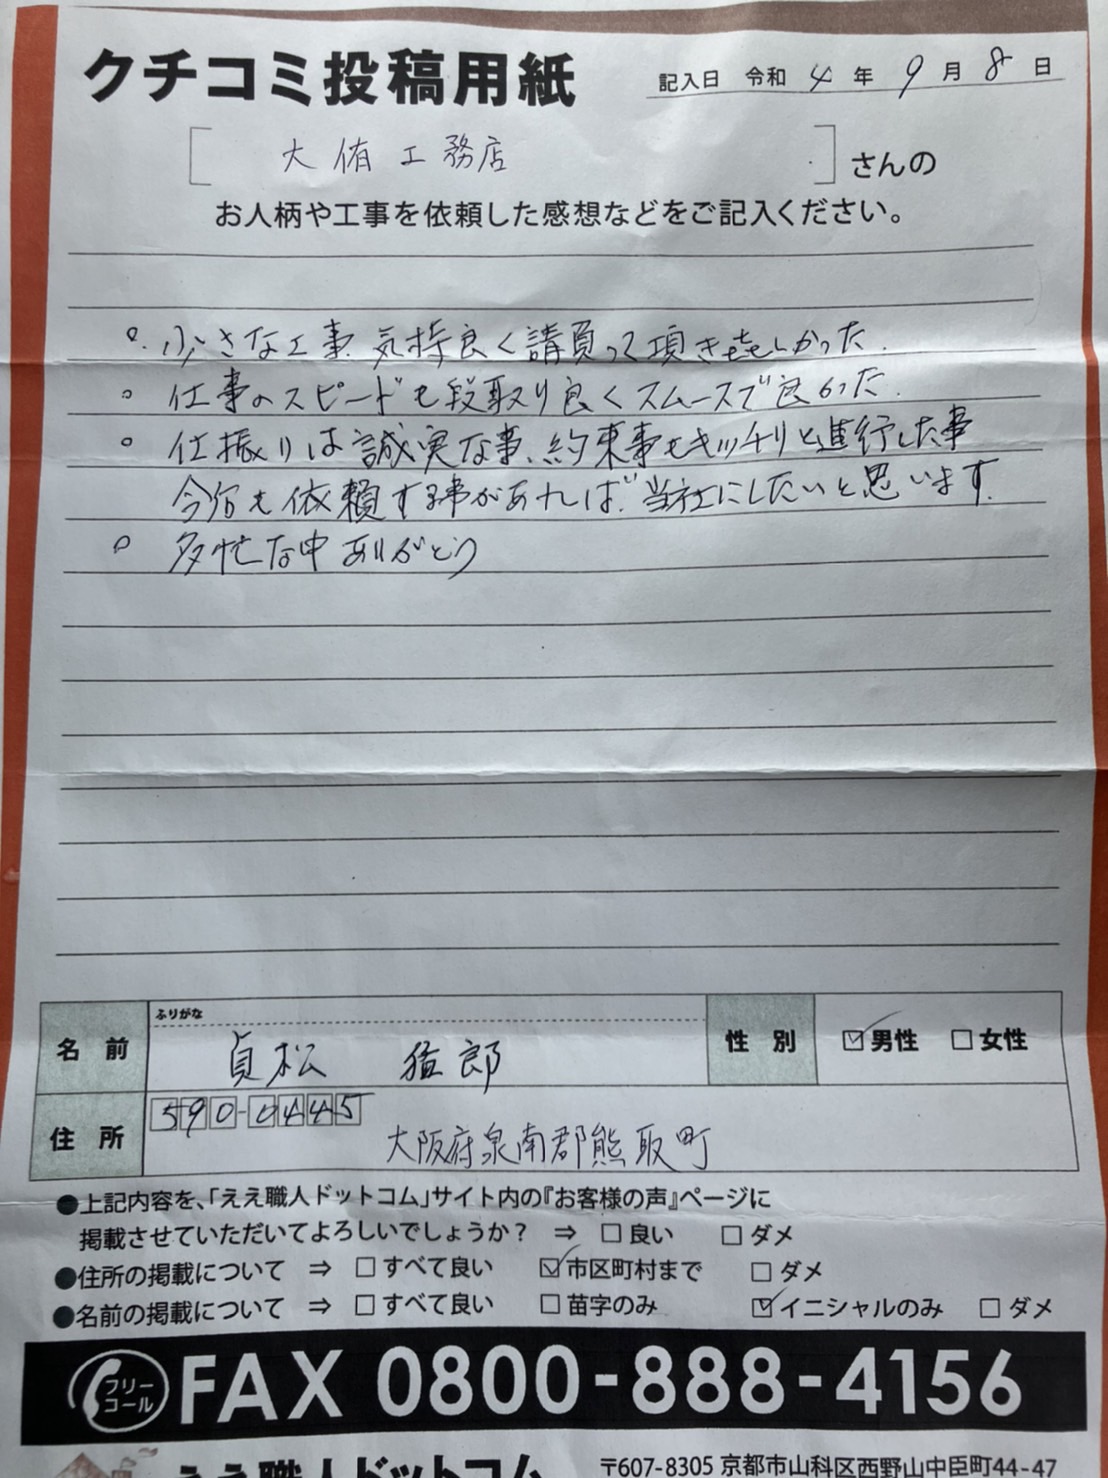 クチコミ投稿用紙
記入日 令和 4 年 9 月 8 日
[ 大侑工務店 ] さんの
お人柄や工事を依頼した感想などをご記入ください。
○. 小さな工事、気持良く請負って頂きたのしかった.
○ 仕事のスピードも段取り良くスムースで良かった.
○ 仕振りは誠実な事、約束事もキッチリと進行した事
今后も依頼する事があれば、当社にしたいと思います.
○ 多忙な中ありがとう
ふりがな
名前 貞松 猛郎 性別 ☑男性 □女性
590-0445
住所 大阪府泉南郡熊取町
●上記内容を、「ええ職人ドットコム」サイト内の『お客様の声』ページに
掲載させていただいてよろしいでしょうか? ⇒ □良い □ダメ
●住所の掲載について ⇒ □すべて良い ☑市区町村まで □ダメ
●名前の掲載について ⇒ □すべて良い □苗字のみ ☑イニシャルのみ □ダメ
フリーコール FAX 0800-888-4156
ええ職人ドットコム 〒607-8305 京都市山科区西野山中臣町44-47